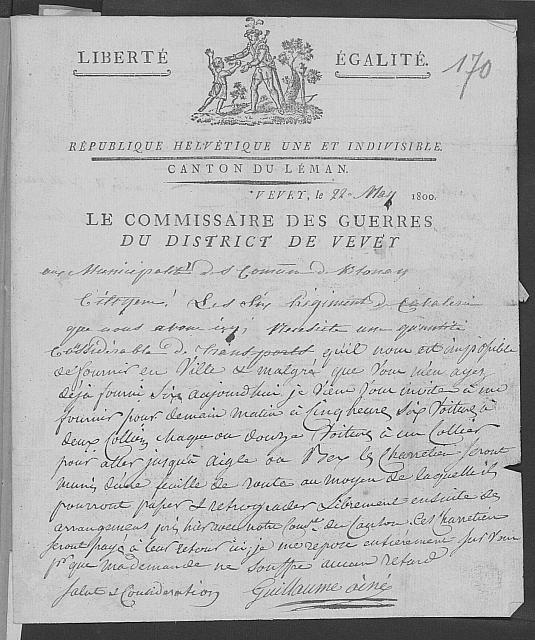 LIBERTÉ ÉGALITÉ.
170
RÉPUBLIQUE HELVÉTIQUE UNE ET INDIVISIBLE.
CANTON DU LÉMAN.
VEVEY, le 22 May 1800.
LE COMMISSAIRE DES GUERRES
DU DISTRICT DE VEVEY
aux Municipalités des Comun de Blonay
Citoyens! Les Six Régiment de Cavalerie
que nous avons icy, Necessite une quantité
Considérable de transports qu'il nous est impossible
de fournir en Ville & malgré que Vous m'en ayez
déjà fourni six aujourdhui je viens Vous invite à me
fournir pour demain matin à Cinq heure Six Voiture à
deux Collier chaque ou douze Voiture à un Collier
pour aller jusqu'à aigle ou Bex les Charretier seront
munis d'une feuille de route au moyen de laquelle ils
pourront passer & retrograder Librement ensuite des
arrangements pris hier avec notre Comre du Canton. Ces Charretiers
seront payé à leur retour ici, je me repose entierement sur Vous
pr que ma demande ne souffre aucun retard
Salut & Considération Guillaume ainé